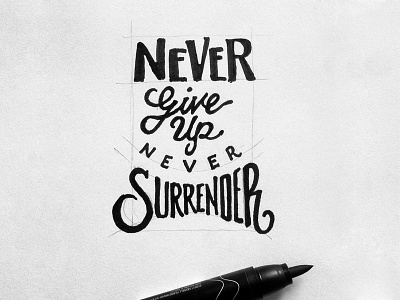 NEVER
Give
Up
NEVER
SURRENDER